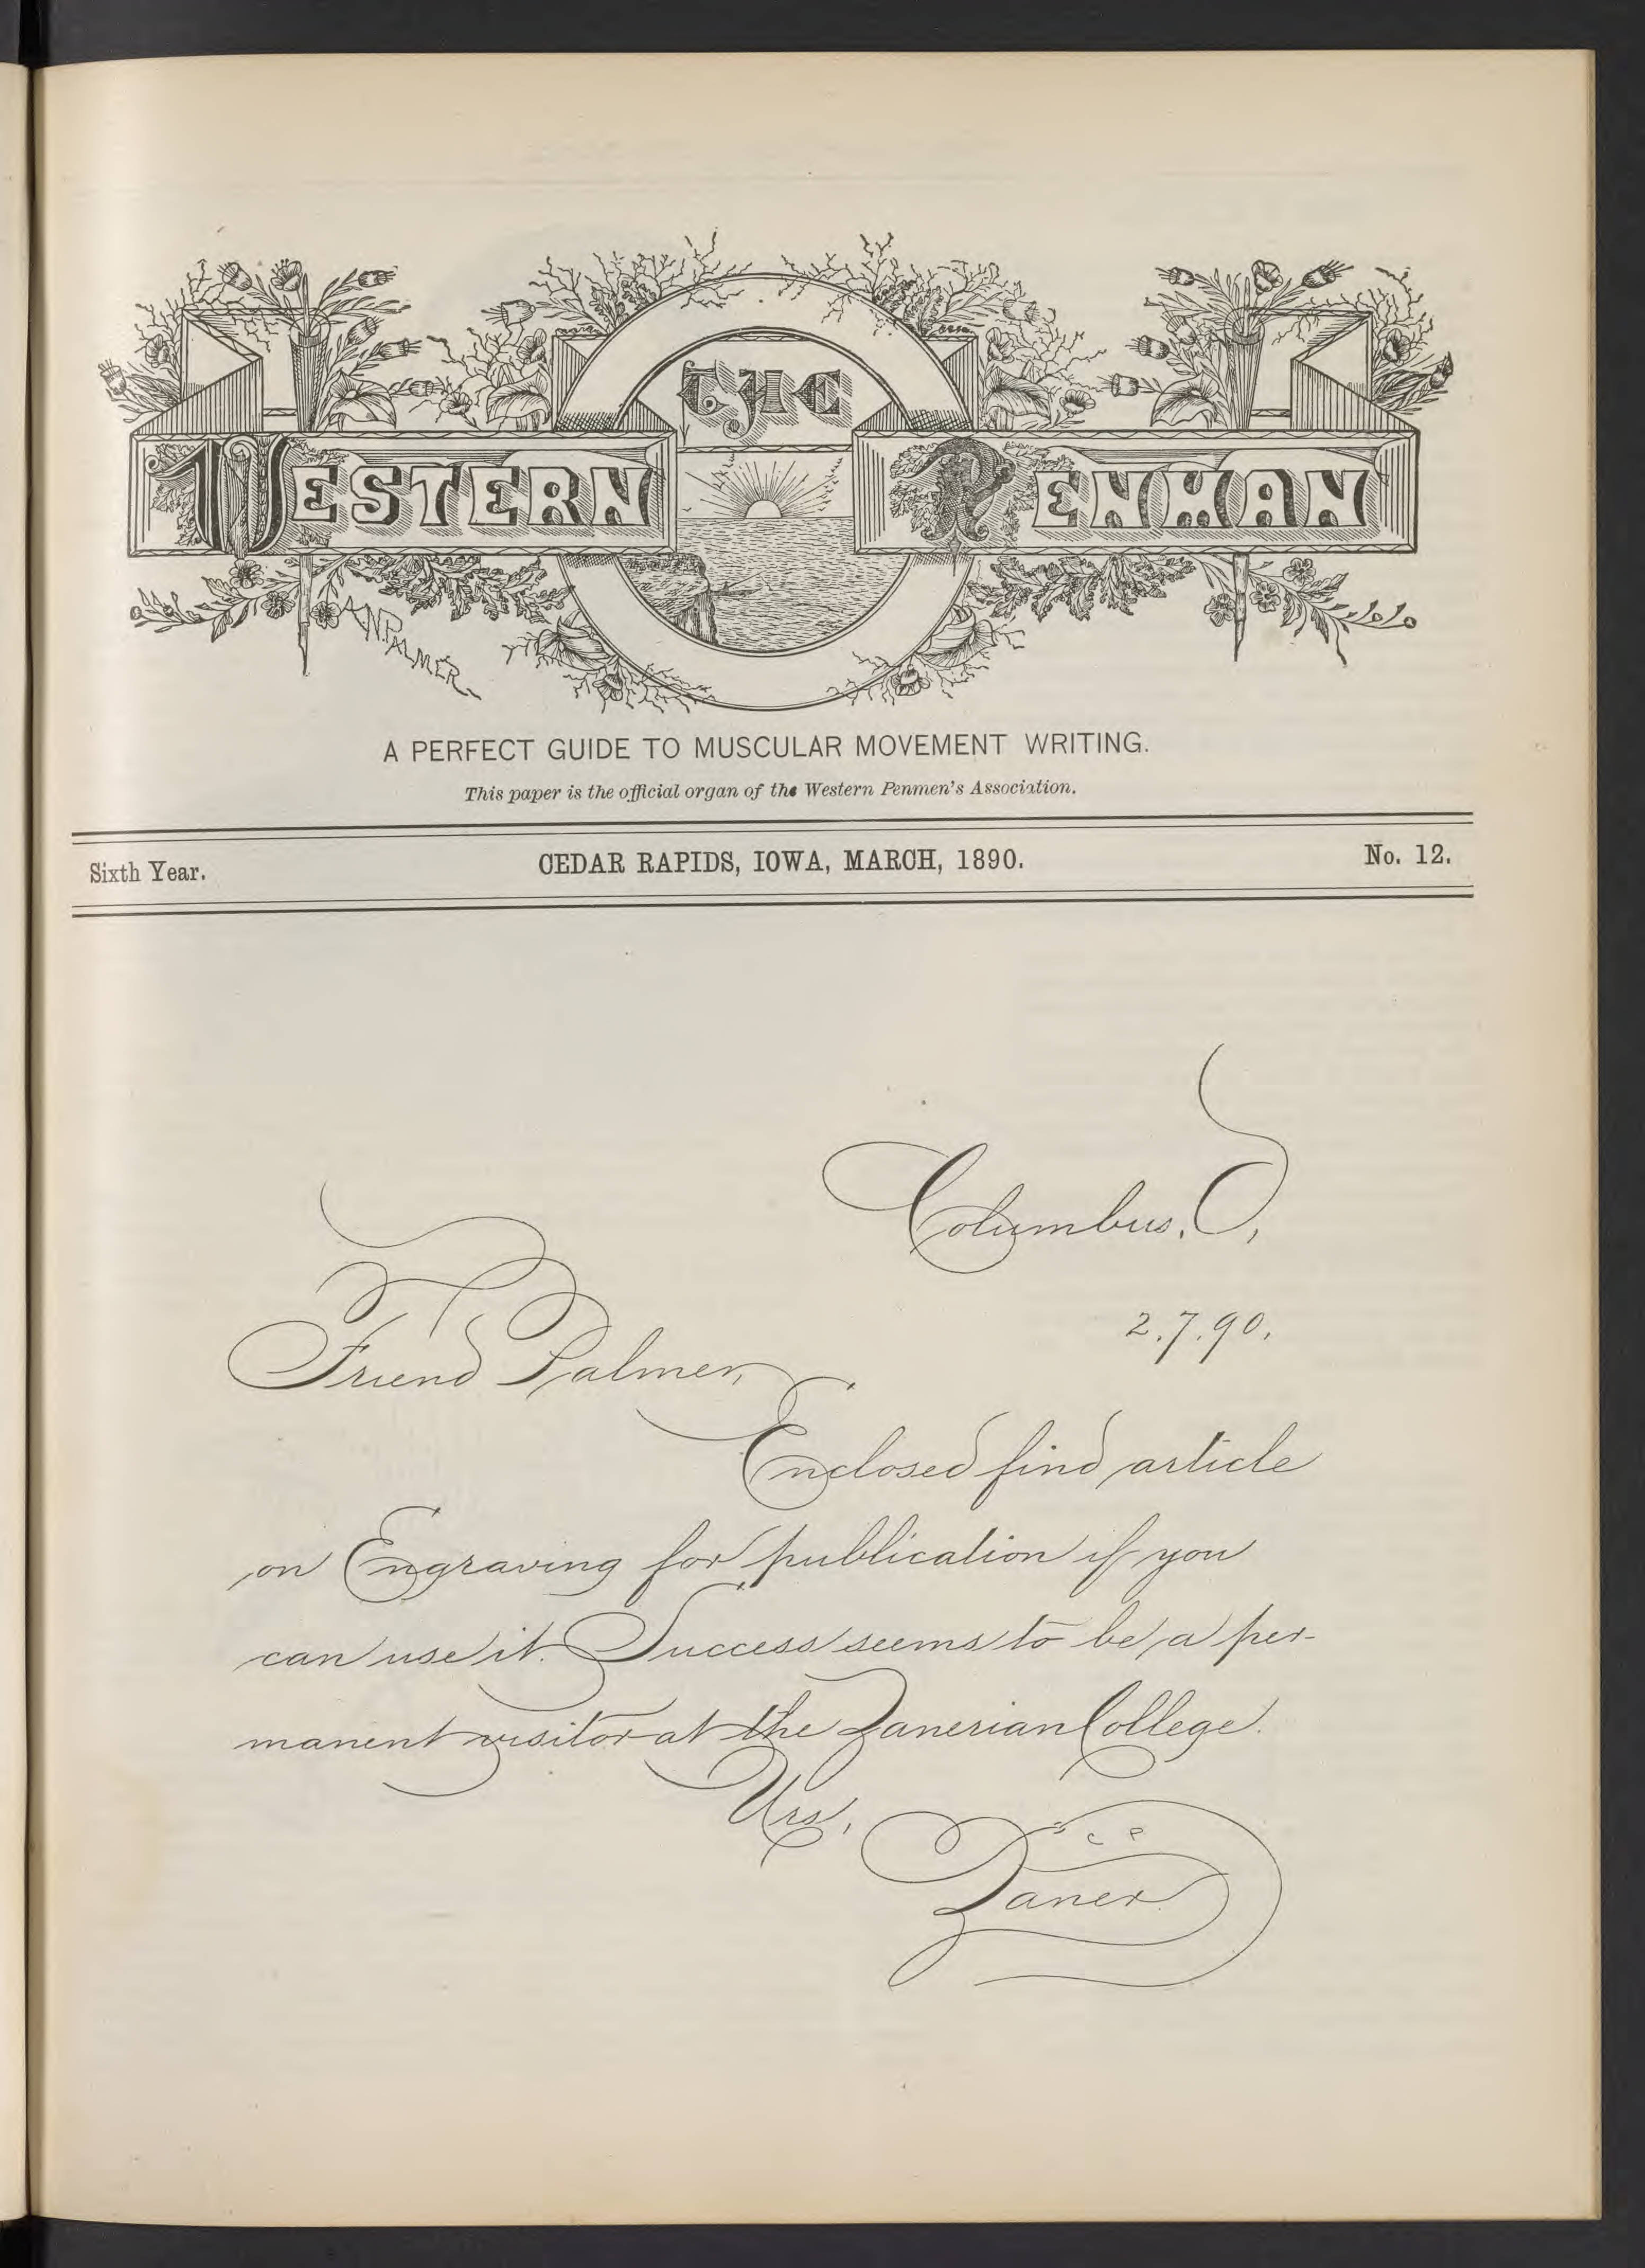 THE
WESTERN PENMAN
A.N. PALMER.
A PERFECT GUIDE TO MUSCULAR MOVEMENT WRITING.
This paper is the official organ of the Western Penmen's Association.
Sixth Year. CEDAR RAPIDS, IOWA, MARCH, 1890. No. 12.
Columbus, O,
2.7.90.
Friend Palmer,
Enclosed find article
on Engraving for publication if you
can use it. Success seems to be a per-
manent visitor at the Zanerian College.
Urs,
Zaner.